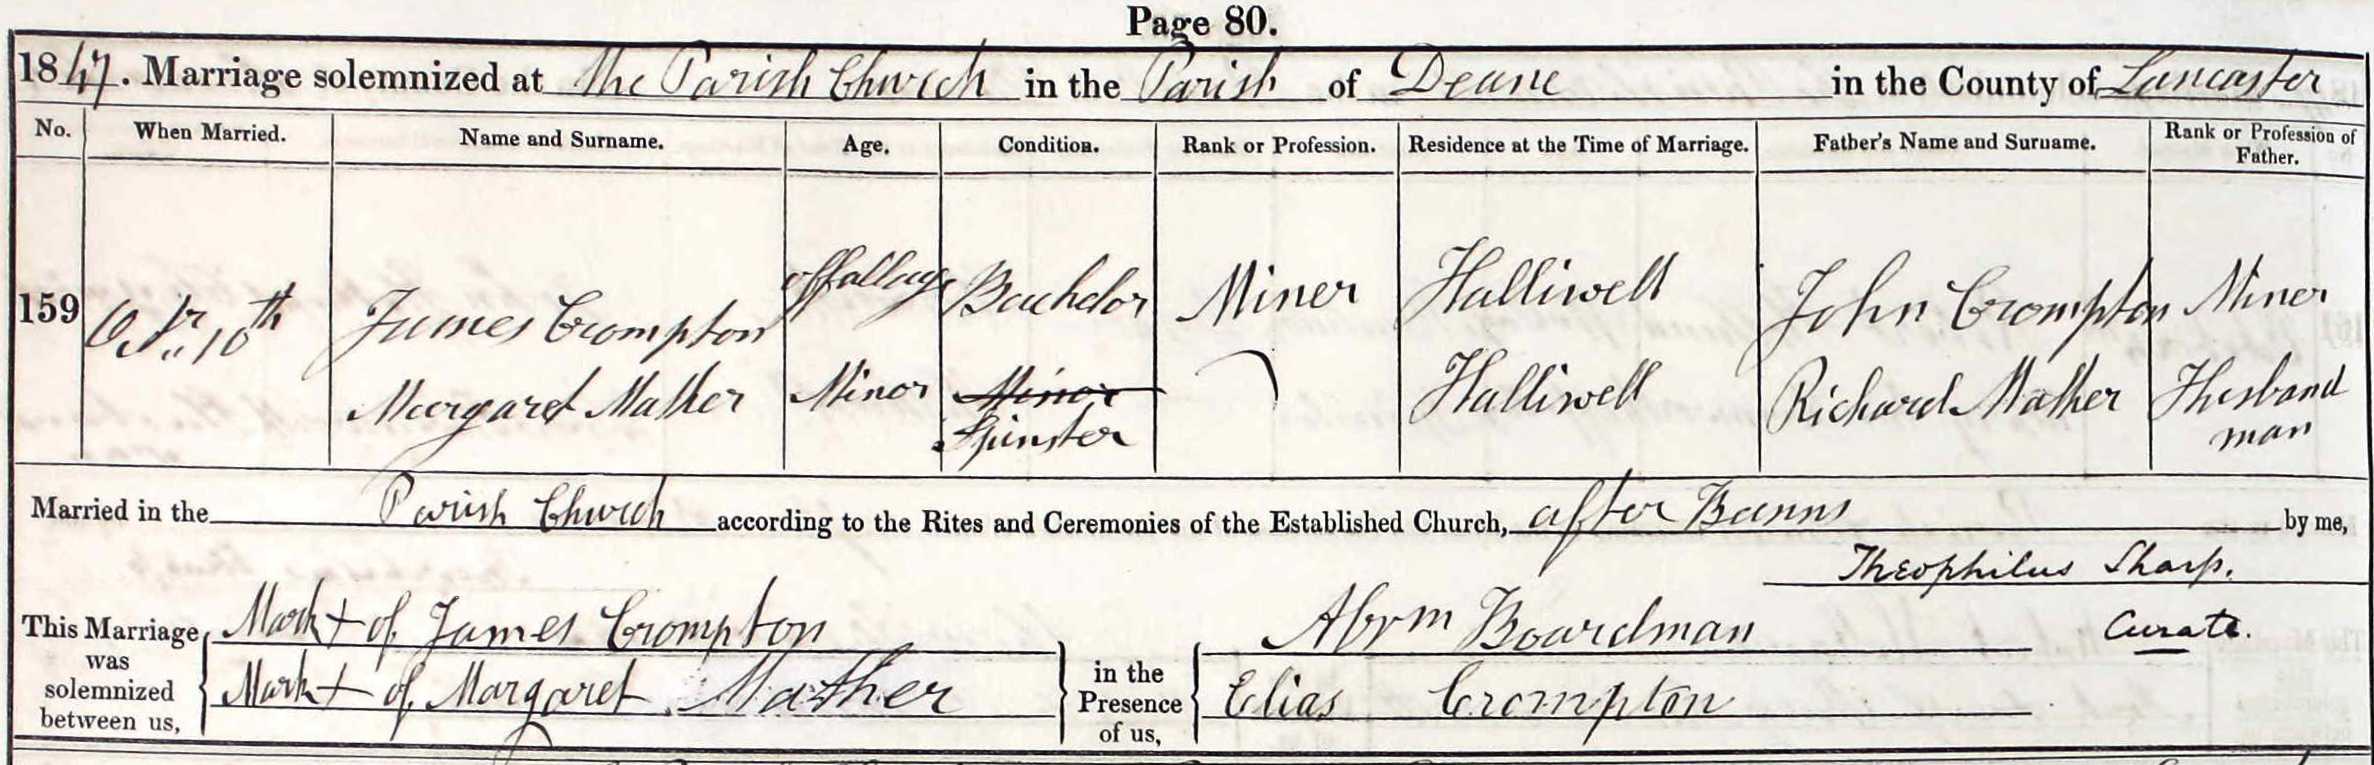 Page 80.
1847. Marriage solemnized at The Parish Church in the Parish of Deane in the County of Lancaster
No. When Married. Name and Surname. Age. Condition. Rank or Profession. Residence at the Time of Marriage. Father's Name and Surname. Rank or Profession of Father.
159 Octr. 10th James Crompton of full age Bachelor Miner Halliwell John Crompton Miner
Margaret Mather Minor Minor Spinster Halliwell Richard Mather Husband
man
Married in the Parish Church according to the Rites and Ceremonies of the Established Church, after Banns by me,
Theophilus Sharp.
Curate.
This Marriage was solemnized between us,
Mark + of James Crompton
Mark + of Margaret Mather
in the Presence of us,
Abrm Boardman
Elias Crompton